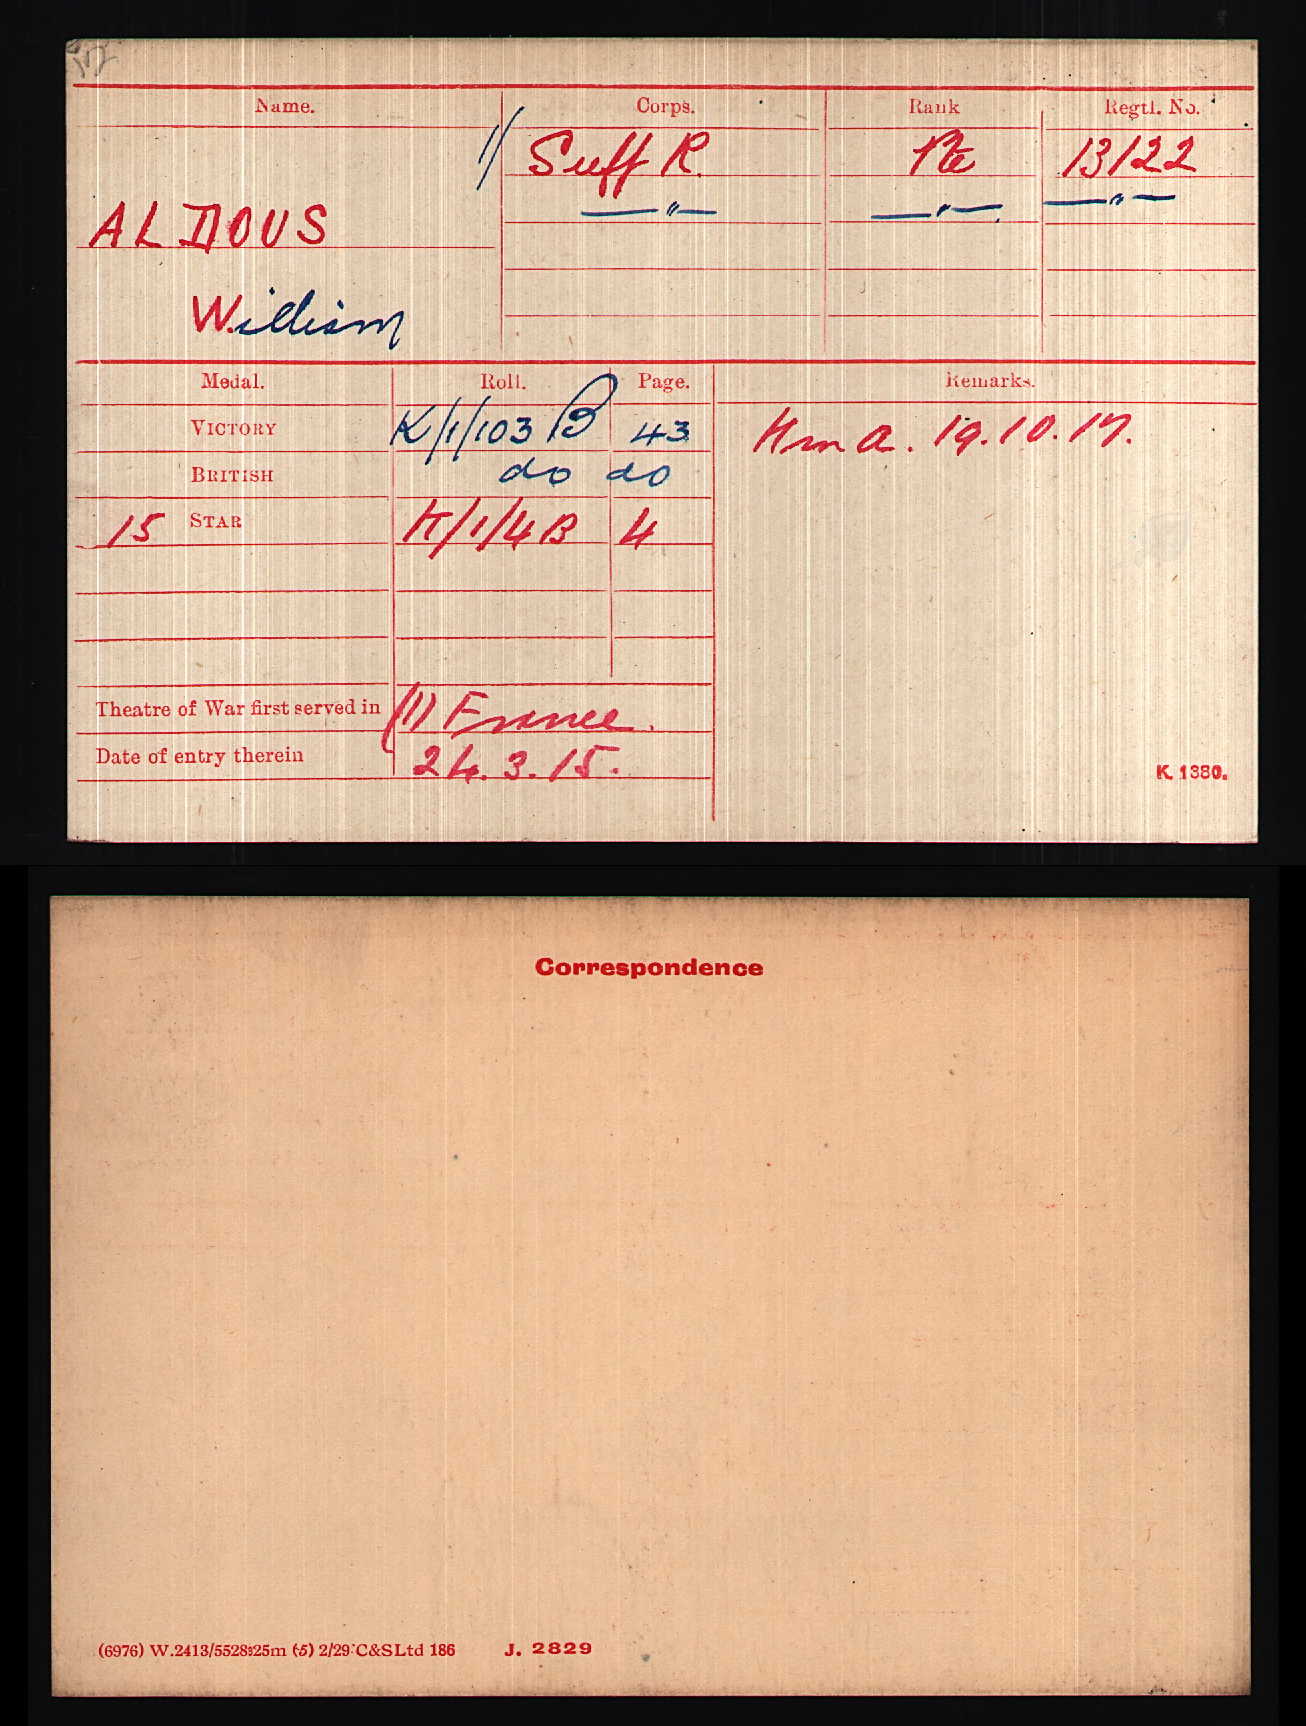 Name. Corps. Rank Regtl. No.
1/ Suff R. Pte 13122
—"— —"— —"—
ALDOUS
William
Medal. Roll. Page. Remarks.
VICTORY K/1/103 B 43
BRITISH do do
15 STAR K/1/4B 4
19.10.17.
Theatre of War first served in (1) France.
Date of entry therein 24.3.15.
K. 1380.
Correspondence
(6976) W.2413/5528 25m (5) 2/29 C&SLtd 186 J. 2829